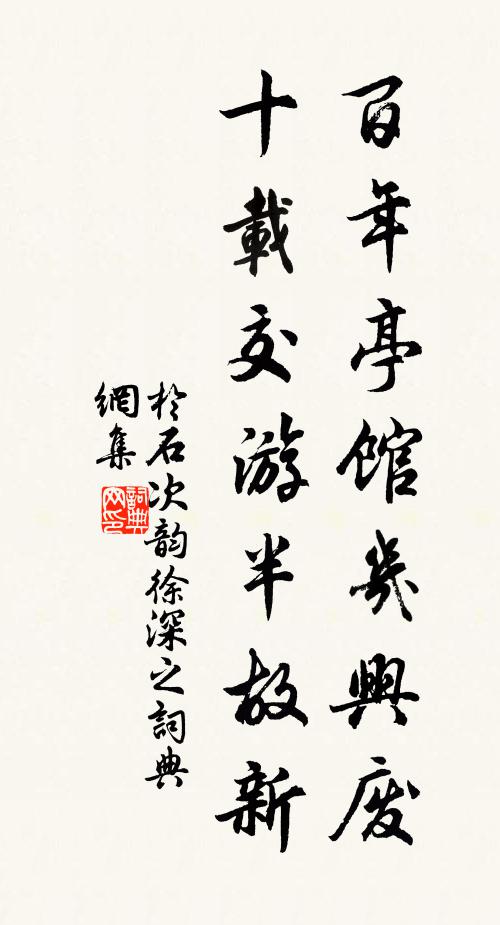 百年亭館幾興廢
十載交游半故新
於石次韵徐深之詞典
網集
詞典
网印